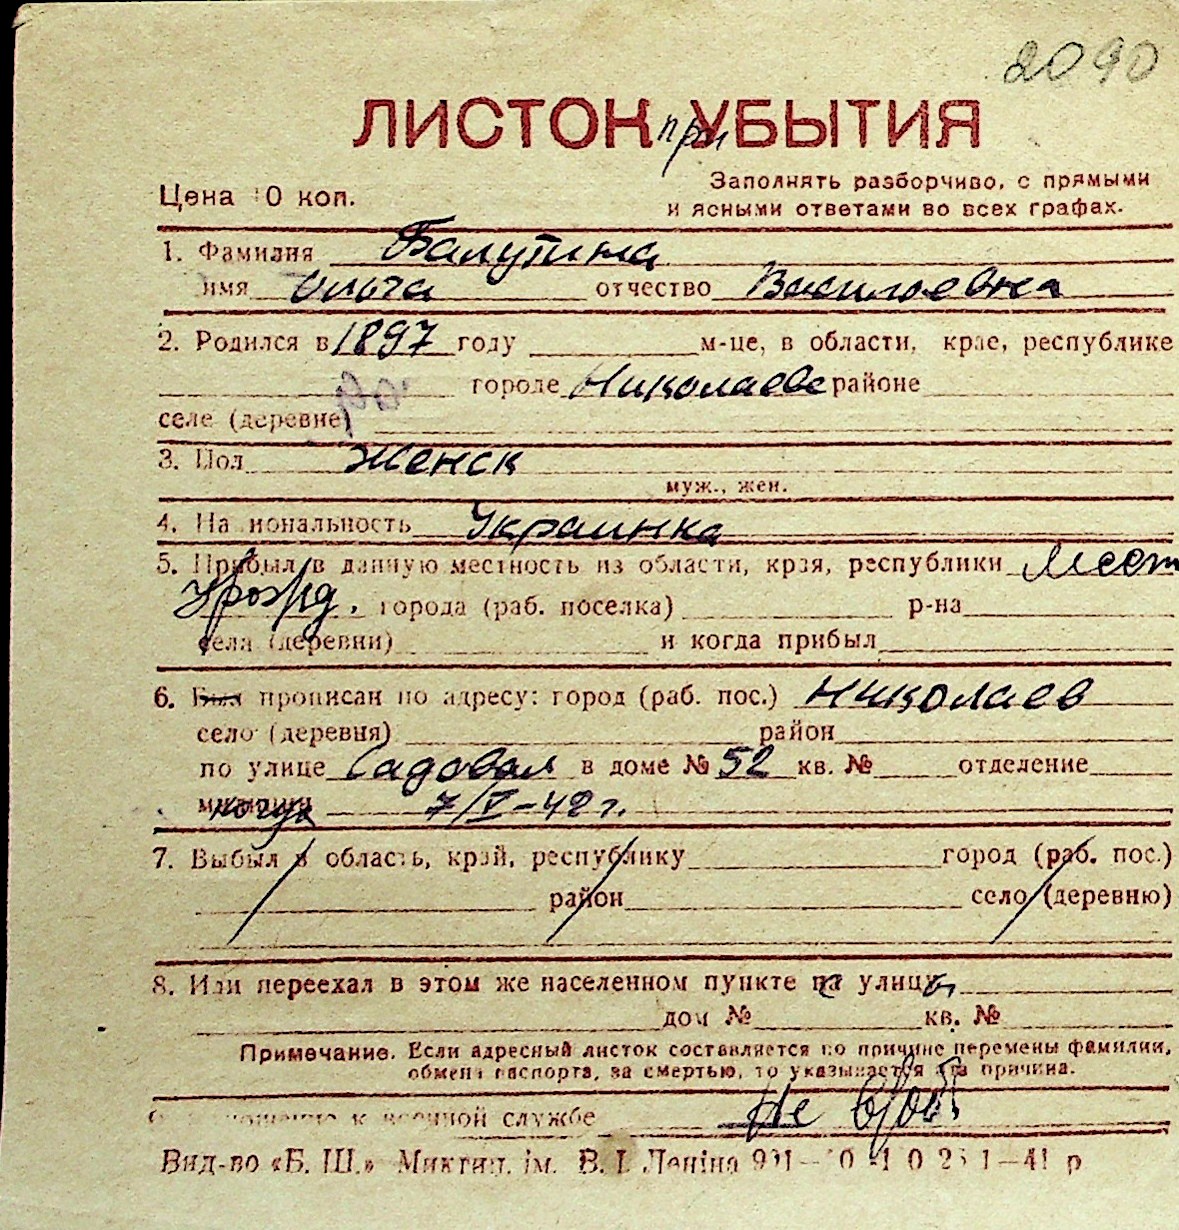 2090
ЛИСТОК при УБЫТИЯ
Цена 10 коп.
Заполнять разборчиво, с прямыми
и ясными ответами во всех графах.
1. Фамилия Балутина
имя Ольга отчество Васильевна
2. Родился в 1897 году м-це, в области, крае, республике
городе Николаеве районе
селе (деревне)
3. Пол Женск
муж., жен.
4. Национальность Украинка
5. Прибыл в данную местность из области, края, республики Мест
Урожд. города (раб. поселка) р-на
села (деревни) и когда прибыл
6. Был прописан по адресу: город (раб. пос.) Николаев
село (деревня) район
по улице Садовая в доме № 52 кв. № отделение
милиции когда 7/V-42 г.
7. Выбыл в область, край, республику город (раб. пос.)
район село (деревню)
8. Или переехал в этом же населенном пункте с улицы
дом № кв. №
Примечание. Если адресный листок составляется по причине перемены фамилии,
обмена паспорта, за смертью, то указывается эта причина.
отношение к военной службе Не в/об
Вид-во «Б. Ш.» Микгип. ім. В. І. Леніна